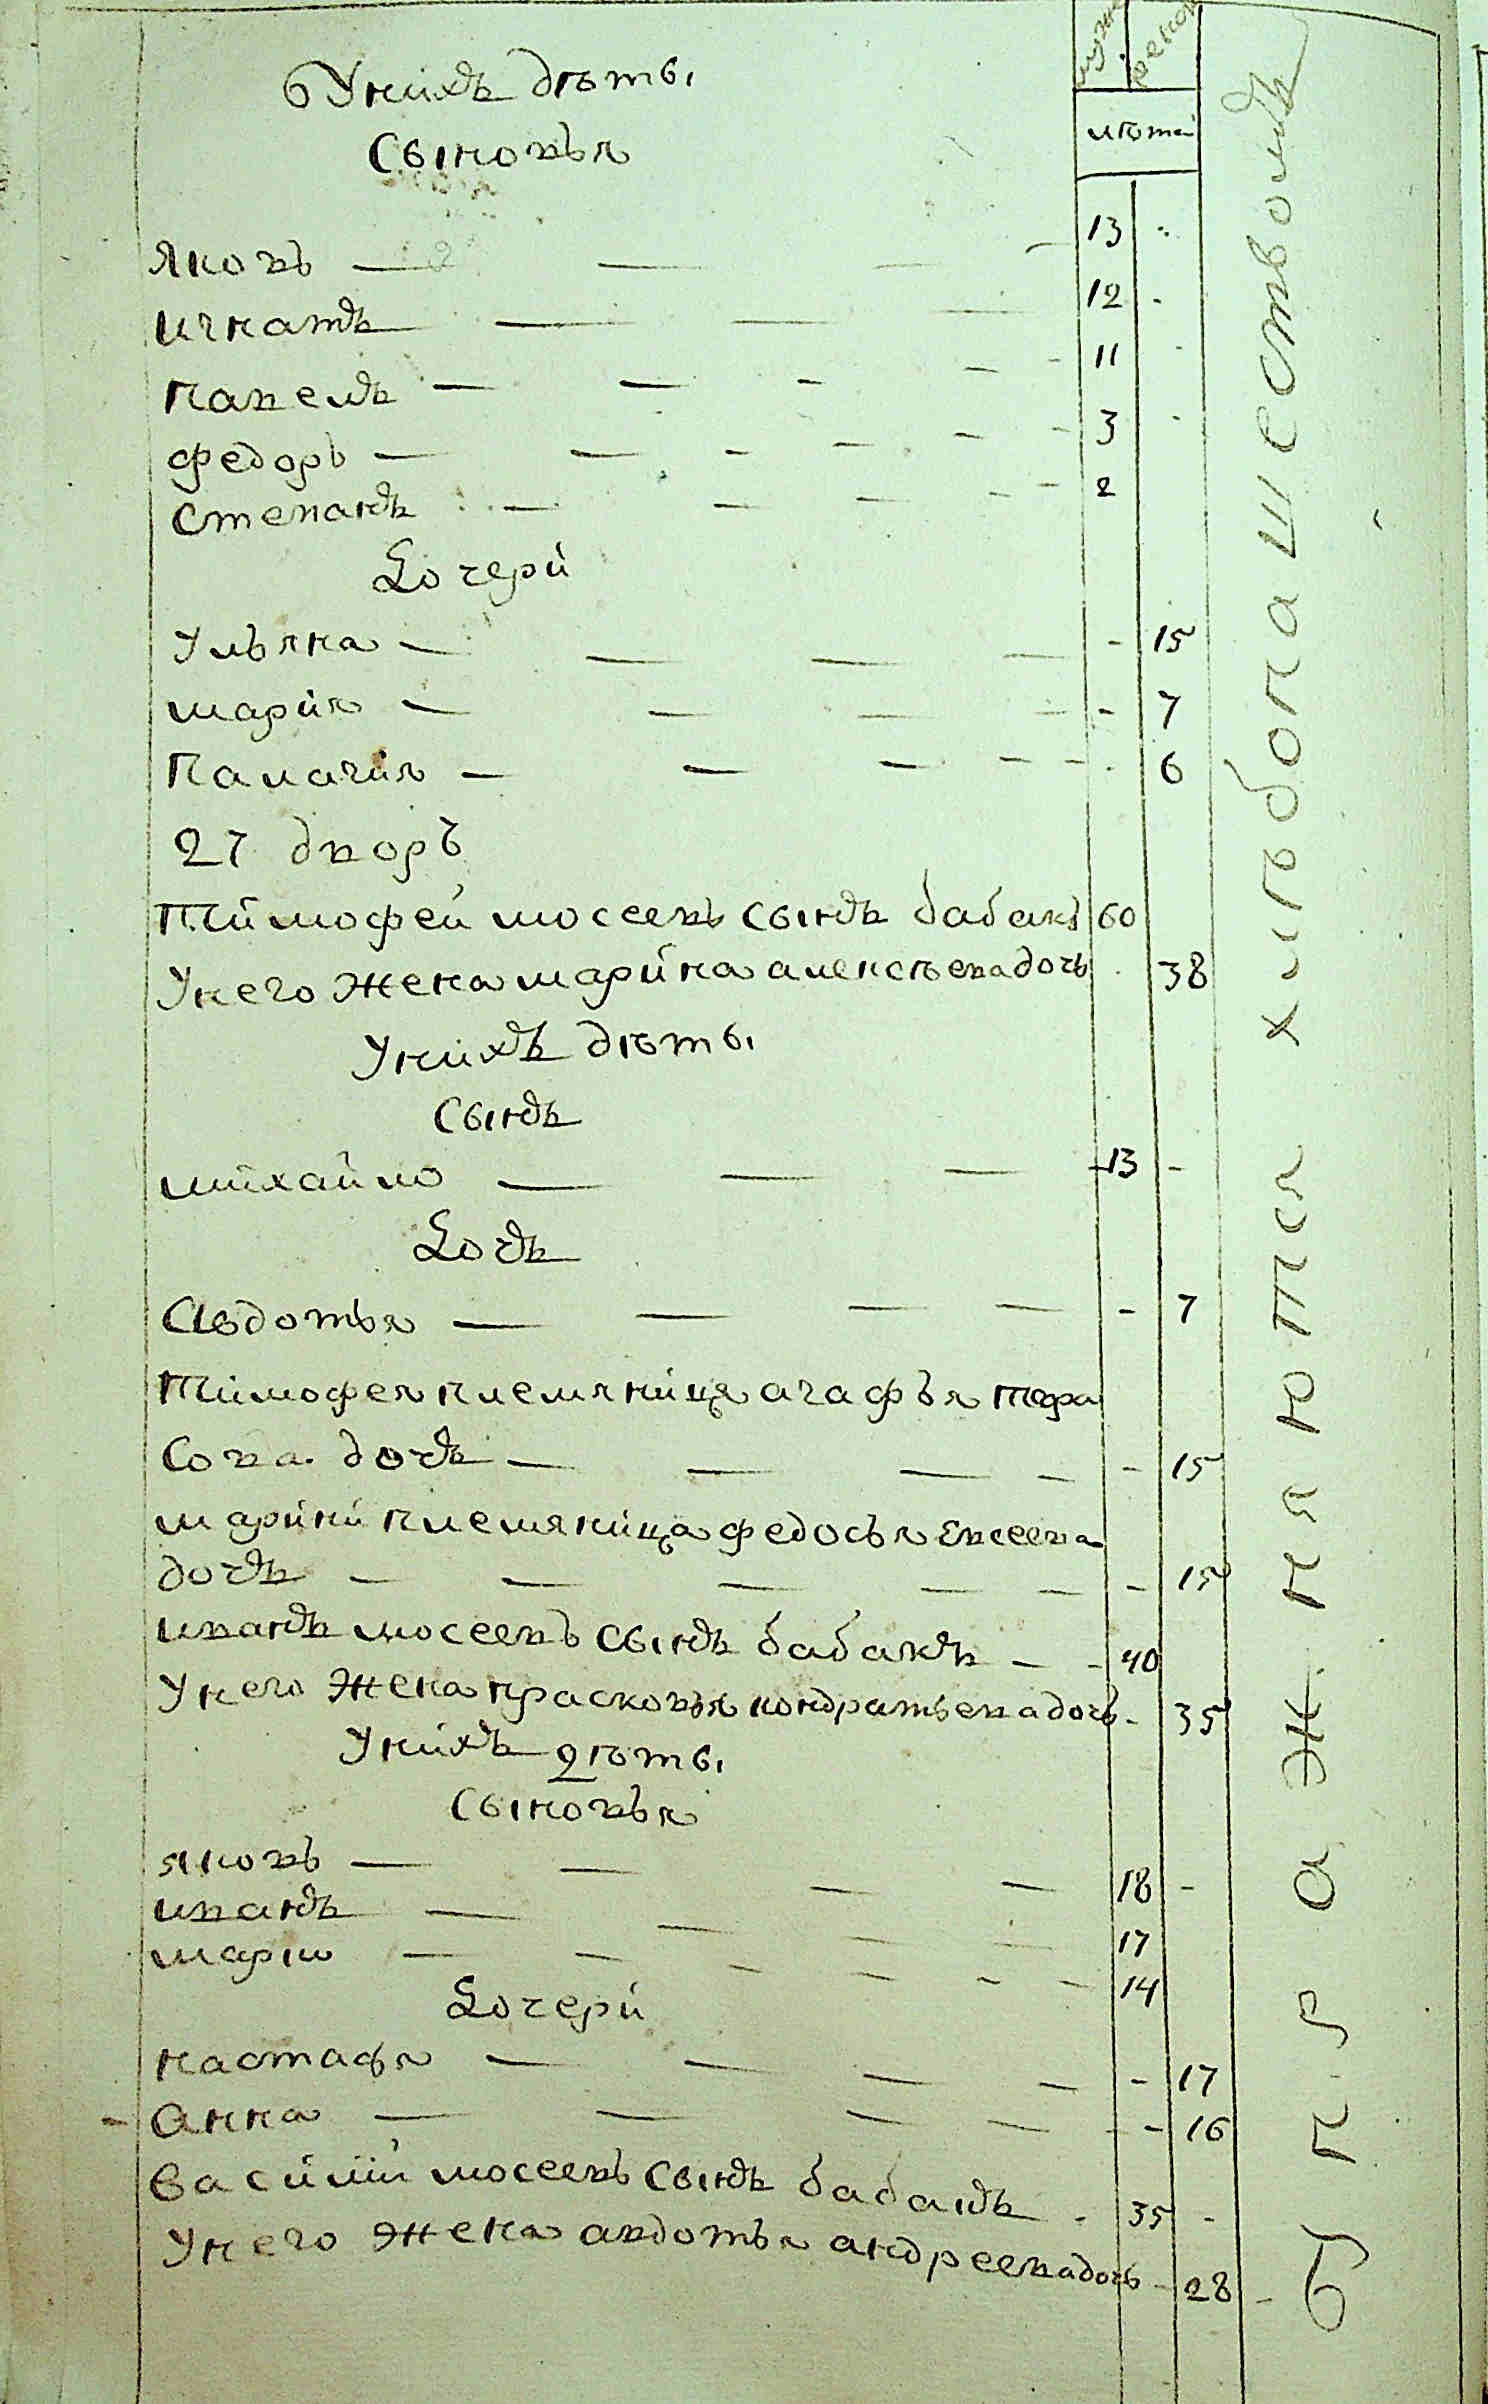 мужс женск
лѣта
Унихъ дѣты
Сыновья
Яковъ — — — — 13
Игнатъ — — — 12
Павелъ — — — — — 11
Федоръ — — — — — — 3
Степанъ — — — — — 2
Дочери
Ульяна — — — — - 15
Мария — — — — - 7
Палагия — — — — — - 6
27 дворъ
Тимофей мосеевъ сынъ бабакъ 60
Унего жена марина алексѣевадочь 38
Унихъ дѣты
Сынъ
михайло — — — 13 -
Дочъ
Авдотья — — — — - 7
Тимофея племяница агафья тера
сова дочъ — — — — - 15
марини племяница федосья евсеева
дочъ — — — — — - 15
иванъ мосеевъ сынъ бабакъ — - 40
Унего жена прасковья кондратьевадочь - 35
Унихъ дѣты
Сыновья
яковъ — — — — 18 -
иванъ — — — — 17
марко — — — — — — 14
Дочери
настася — — — — - 17
Анна — — — — - 16
Василий мосеевъ сынъ бабакъ - 35 -
Унего жена авдотья андреевадочь - 28 -
Упражняются хлѣбопашествомъ